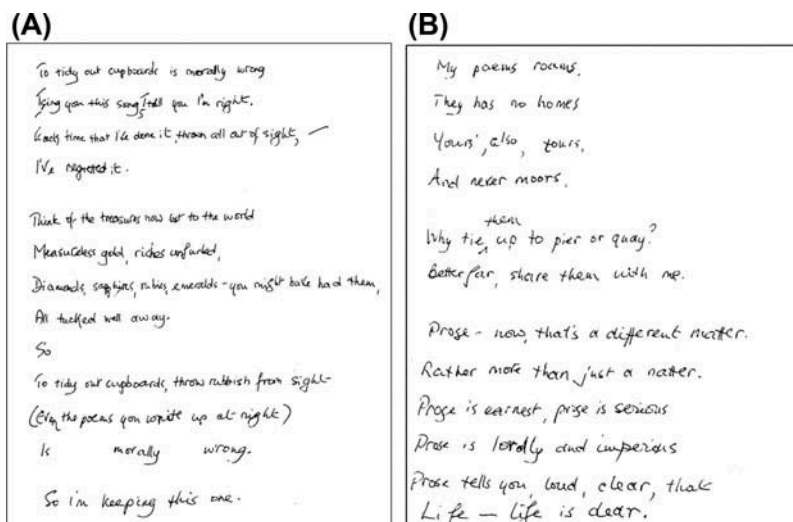 (A)
To tidy out cupboards is morally wrong
I sing you this song, I tell you I'm right.
Each time that I've done it, thrown all out of sight,
I've regretted it.
Think of the treasures now lost to the world
Measureless gold, riches unfurled,
Diamonds, sapphires, rubies, emeralds - you might have had them,
All tucked well away.
So
To tidy out cupboards, throw rubbish from sight
(Even the poems you write up at night)
Is morally wrong.
So I'm keeping this one.
(B)
My poems roams,
They has no homes
Yours', also, yours,
And never moors,
Why tie them up to pier or quay?
Better far, share them with me.
Prose - now, that's a different matter.
Rather more than just a natter.
Prose is earnest, prose is serious
Prose is lordly and imperious
Prose tells you, loud, clear, that
Life — life is dear.